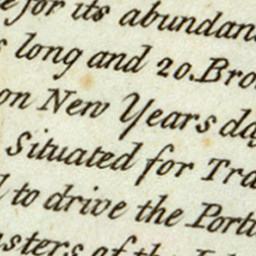 for its abundan
long and 20. Bro
on New Years da
Situated for Tra
to drive the Portu
sters of the